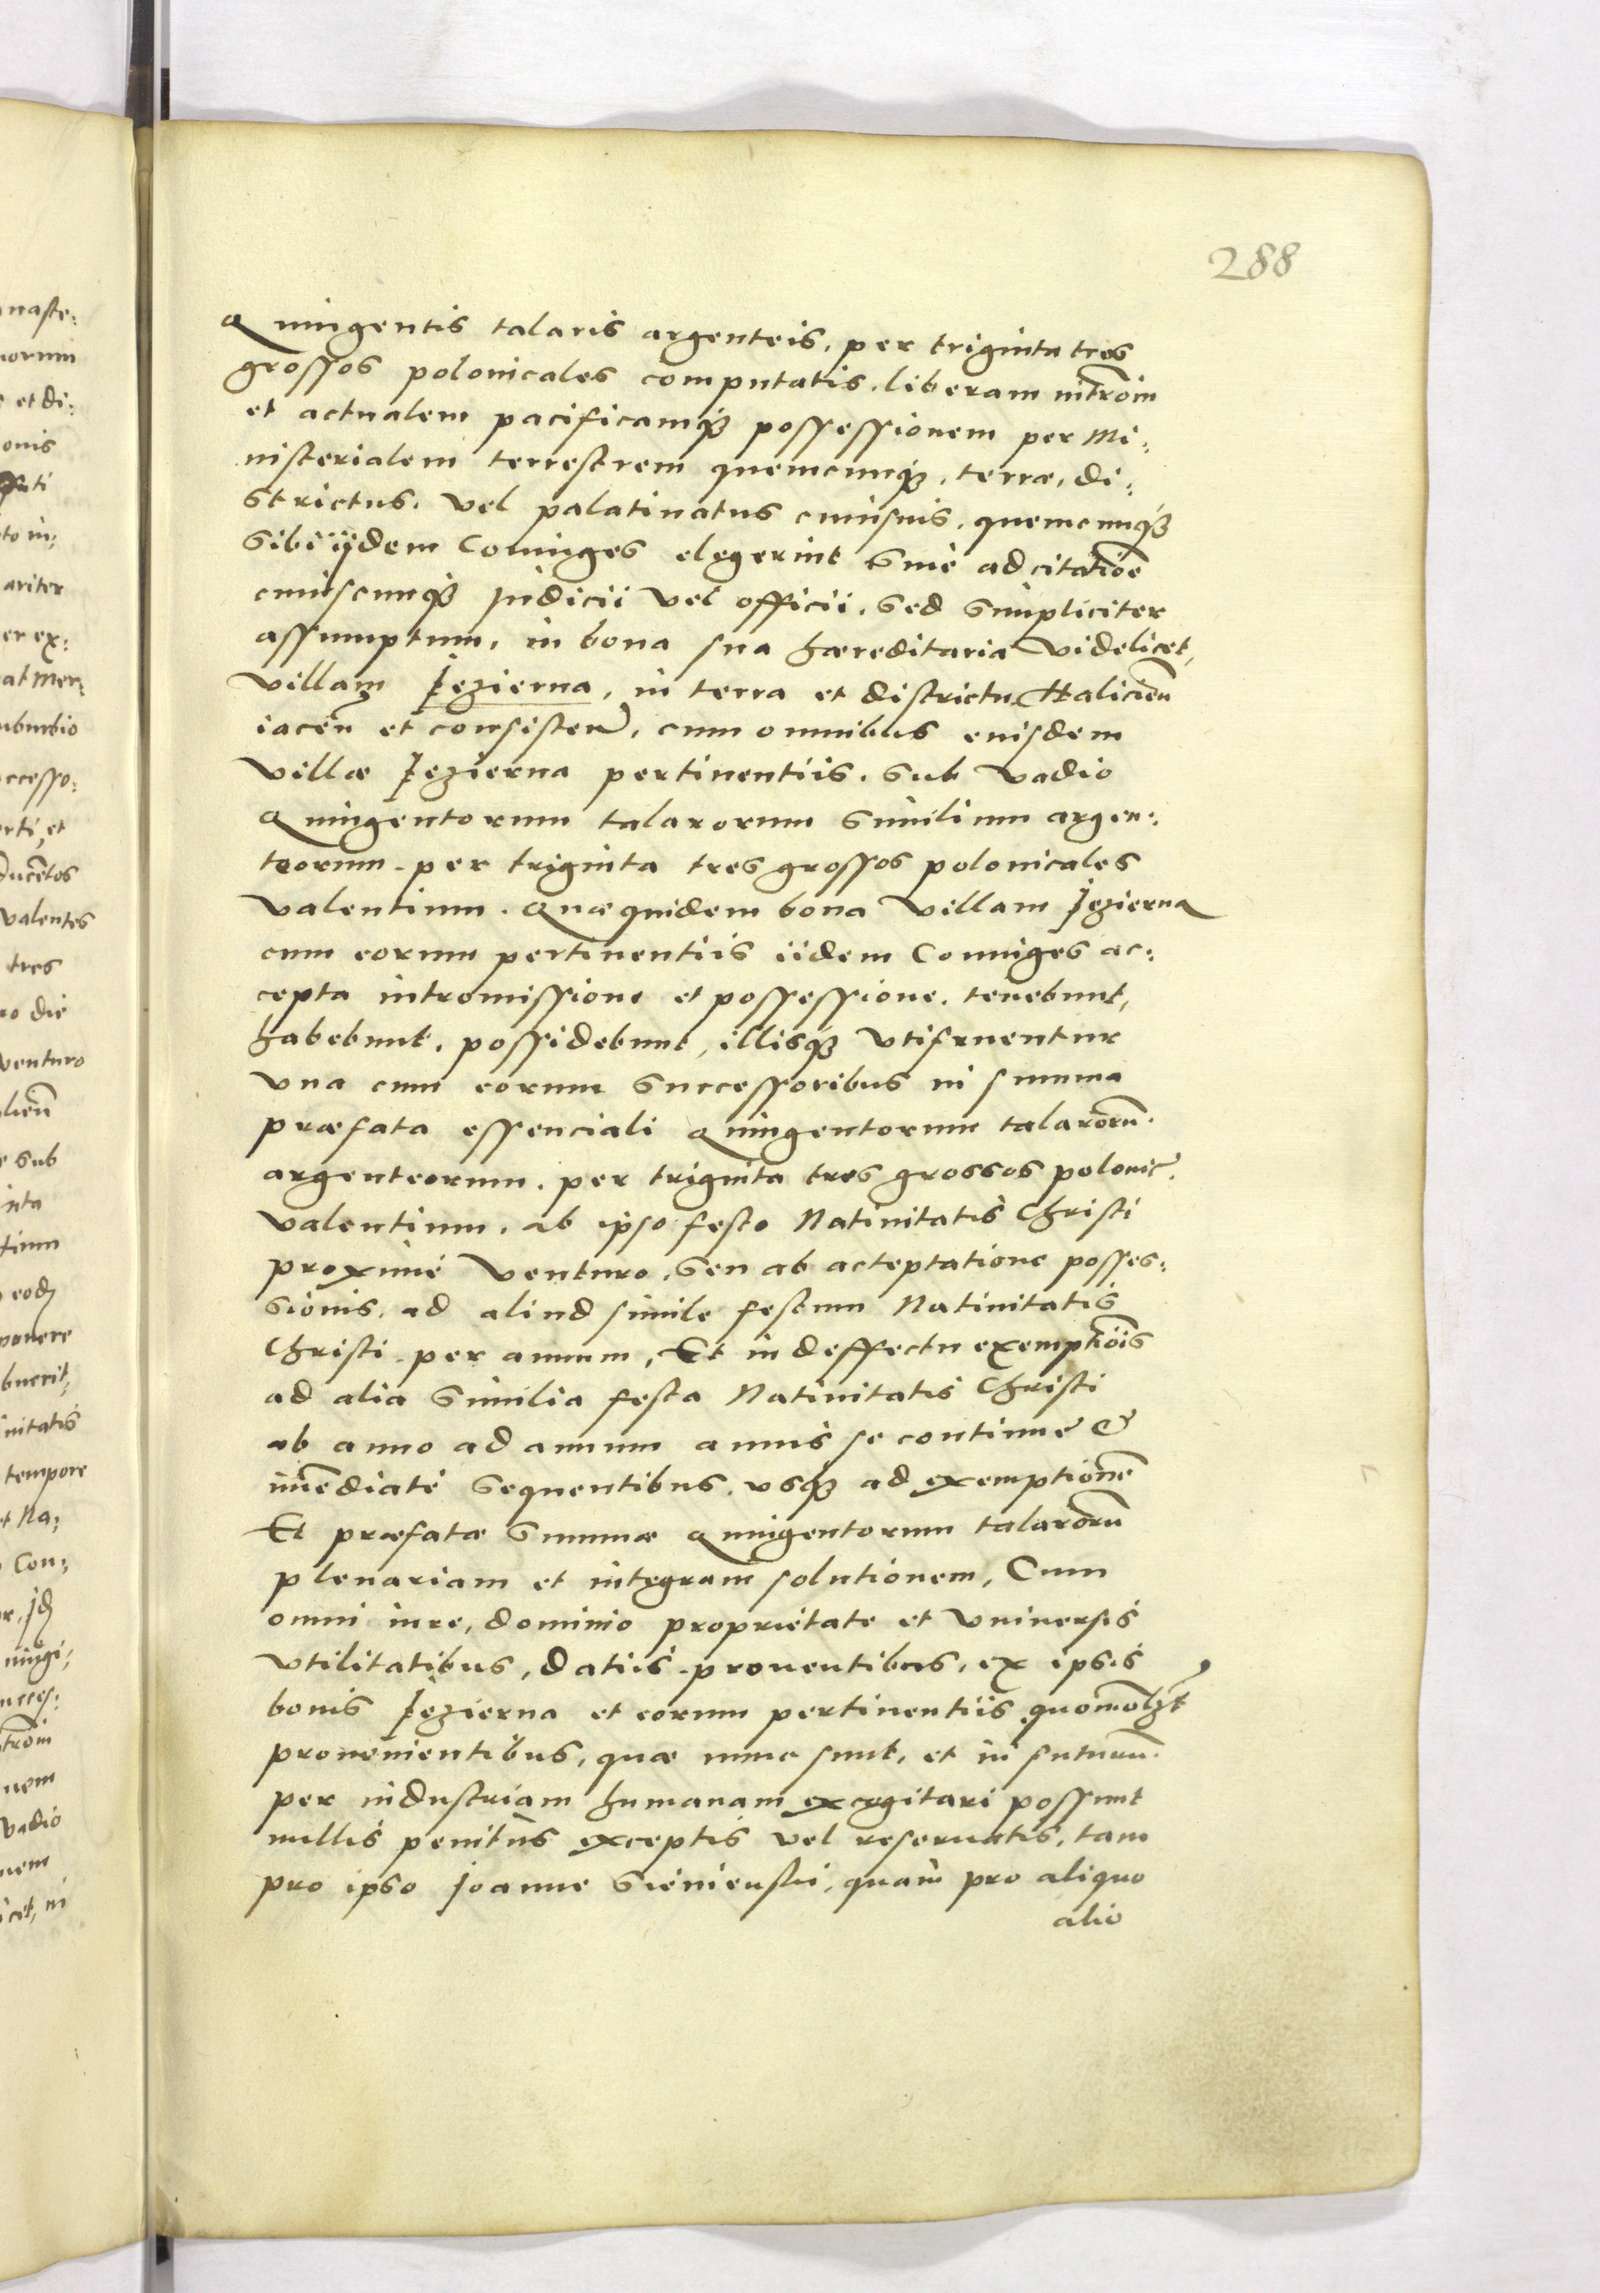 288
Quingentis talaris argenteis, per triginta tres
grossos polonicales computatis, liberam intromĩ
et actualem pacificamq3 possessionem per Mi:
nisterialem terrestrem quemcunq3, terræ, di:
strictus, vel palatinatus cuiusuis, quemcunq3
sibi iidem Coniuges elegerint sine adcitatiõe
cuiuscunq3 Judicii vel officii, sed simpliciter
assumptum, in bona sua hæreditaria videlicet,
villam Jezierna, in terra et districtu Haliciẽn
iacẽn et consisteñ, cum omnibus eiusdem
villæ Jezierna pertinentiis, sub vadio
Quingentorum talarorum similium argen:
teorum per triginta tres grossos polonicales
valentium. Quæquidem bona villam Jezierna
cum eorum pertinentiis iidem Coniuges ac:
cepta intromissione et possessione, tenebunt,
habebunt, possidebunt, illisq3 vtifruentur
vna cum eorum successoribus in summa
præfata essenciali Quingentorum talarorũ
argenteorum, per triginta tres grossos polonic̃
valentium, ab ipso festo Natiuitatis Christi
proximè venturo, seu ab acteptatione posses:
sionis, ad aliud simile festum Natiuitatis
Christi per annum, Et in deffectu exemptiõis
ad alia similia festa Natiuitatis Christi
ab anno ad annum annis se continuè &
imẽdiatè sequentibus, vsq3 ad exemptionẽ
Et præfatæ summæ Quingentorum talarorũ
plenariam et integram solutionem, Cum
omni iure, dominio proprietate et vniuersis
vtilitatibus, datiis prouentibus, ex ipsis
bonis Jezierna et eorum pertinentiis quomõlzt
prouenientibus, quæ nunc sunt, et in futurũ
per industriam humanam excogitari possunt
nullis penitùs exceptis vel reseruatis, tam
pro ipso Joanne Sienienski, quàm pro aliquo
alio